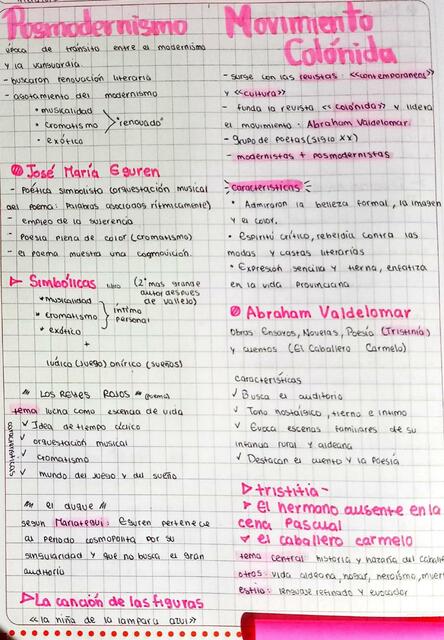 Posmodernismo
época de tránsito entre el modernismo
y la vanguardia
- buscaron renovación literaria
- agotamiento del modernismo
• musicalidad
• cromatismo "renovado"
• exótico
José María Eguren
- Poética simbolista (orquestación musical
del poema: Palabras asociadas rítmicamente)
- empleo de la sugerencia
- poesía plena de color (cromatismo)
- el poema muestra una cosmovisión.
Simbólicas libro (2° mas grande
autor despues
de vallejo)
• musicalidad
• cromatismo íntimo
personal
• exótico
+
lúdico (juego) onírico (sueños)
" LOS REYES ROJOS " (poema)
tema lucha como esencia de vida
características
✓ Idea de tiempo cíclico
✓ orquestación musical
✓ cromatismo
✓ mundo del juego y del sueño
" el duque "
según Mariategui: Eguren pertenece
al periodo cosmopolita por su
singularidad y que no busca el gran
auditorio
La canción de las figuras
<<la niña de la lampara azul>>
Movimiento
Colónida
- surge con las revistas: <<contemporaneos>>
y <<cultura>>
- funda la revista <<colónida>> y lidera
el movimiento: Abraham Valdelomar.
- grupo de poetas (siglo xx)
- modernistas + posmodernistas
características
• Admiraron la belleza formal, la imagen
y el color.
• Espíritu crítico, rebeldia contra las
modas y castas literarias
• Expresión sencilla y tierna, enfatiza
en la vida provinciana
Abraham Valdelomar
Obras Ensayos, Novelas, Poesía (Tristitia)
y cuentos (El Caballero Carmelo)
características
✓ Busca el auditorio
✓ Tono nostálgico, tierno e intimo
✓ Evoca escenas familiares de su
infancia rural y aldeana
✓ Destacan el cuento y la Poesía
tristitia -
El hermano ausente en la
cena Pascual
el caballero carmelo
tema central historia y hazaña del
otros: vida aldeana, hogar, heroísmo,
estilo: lenguaje refinado y evocador